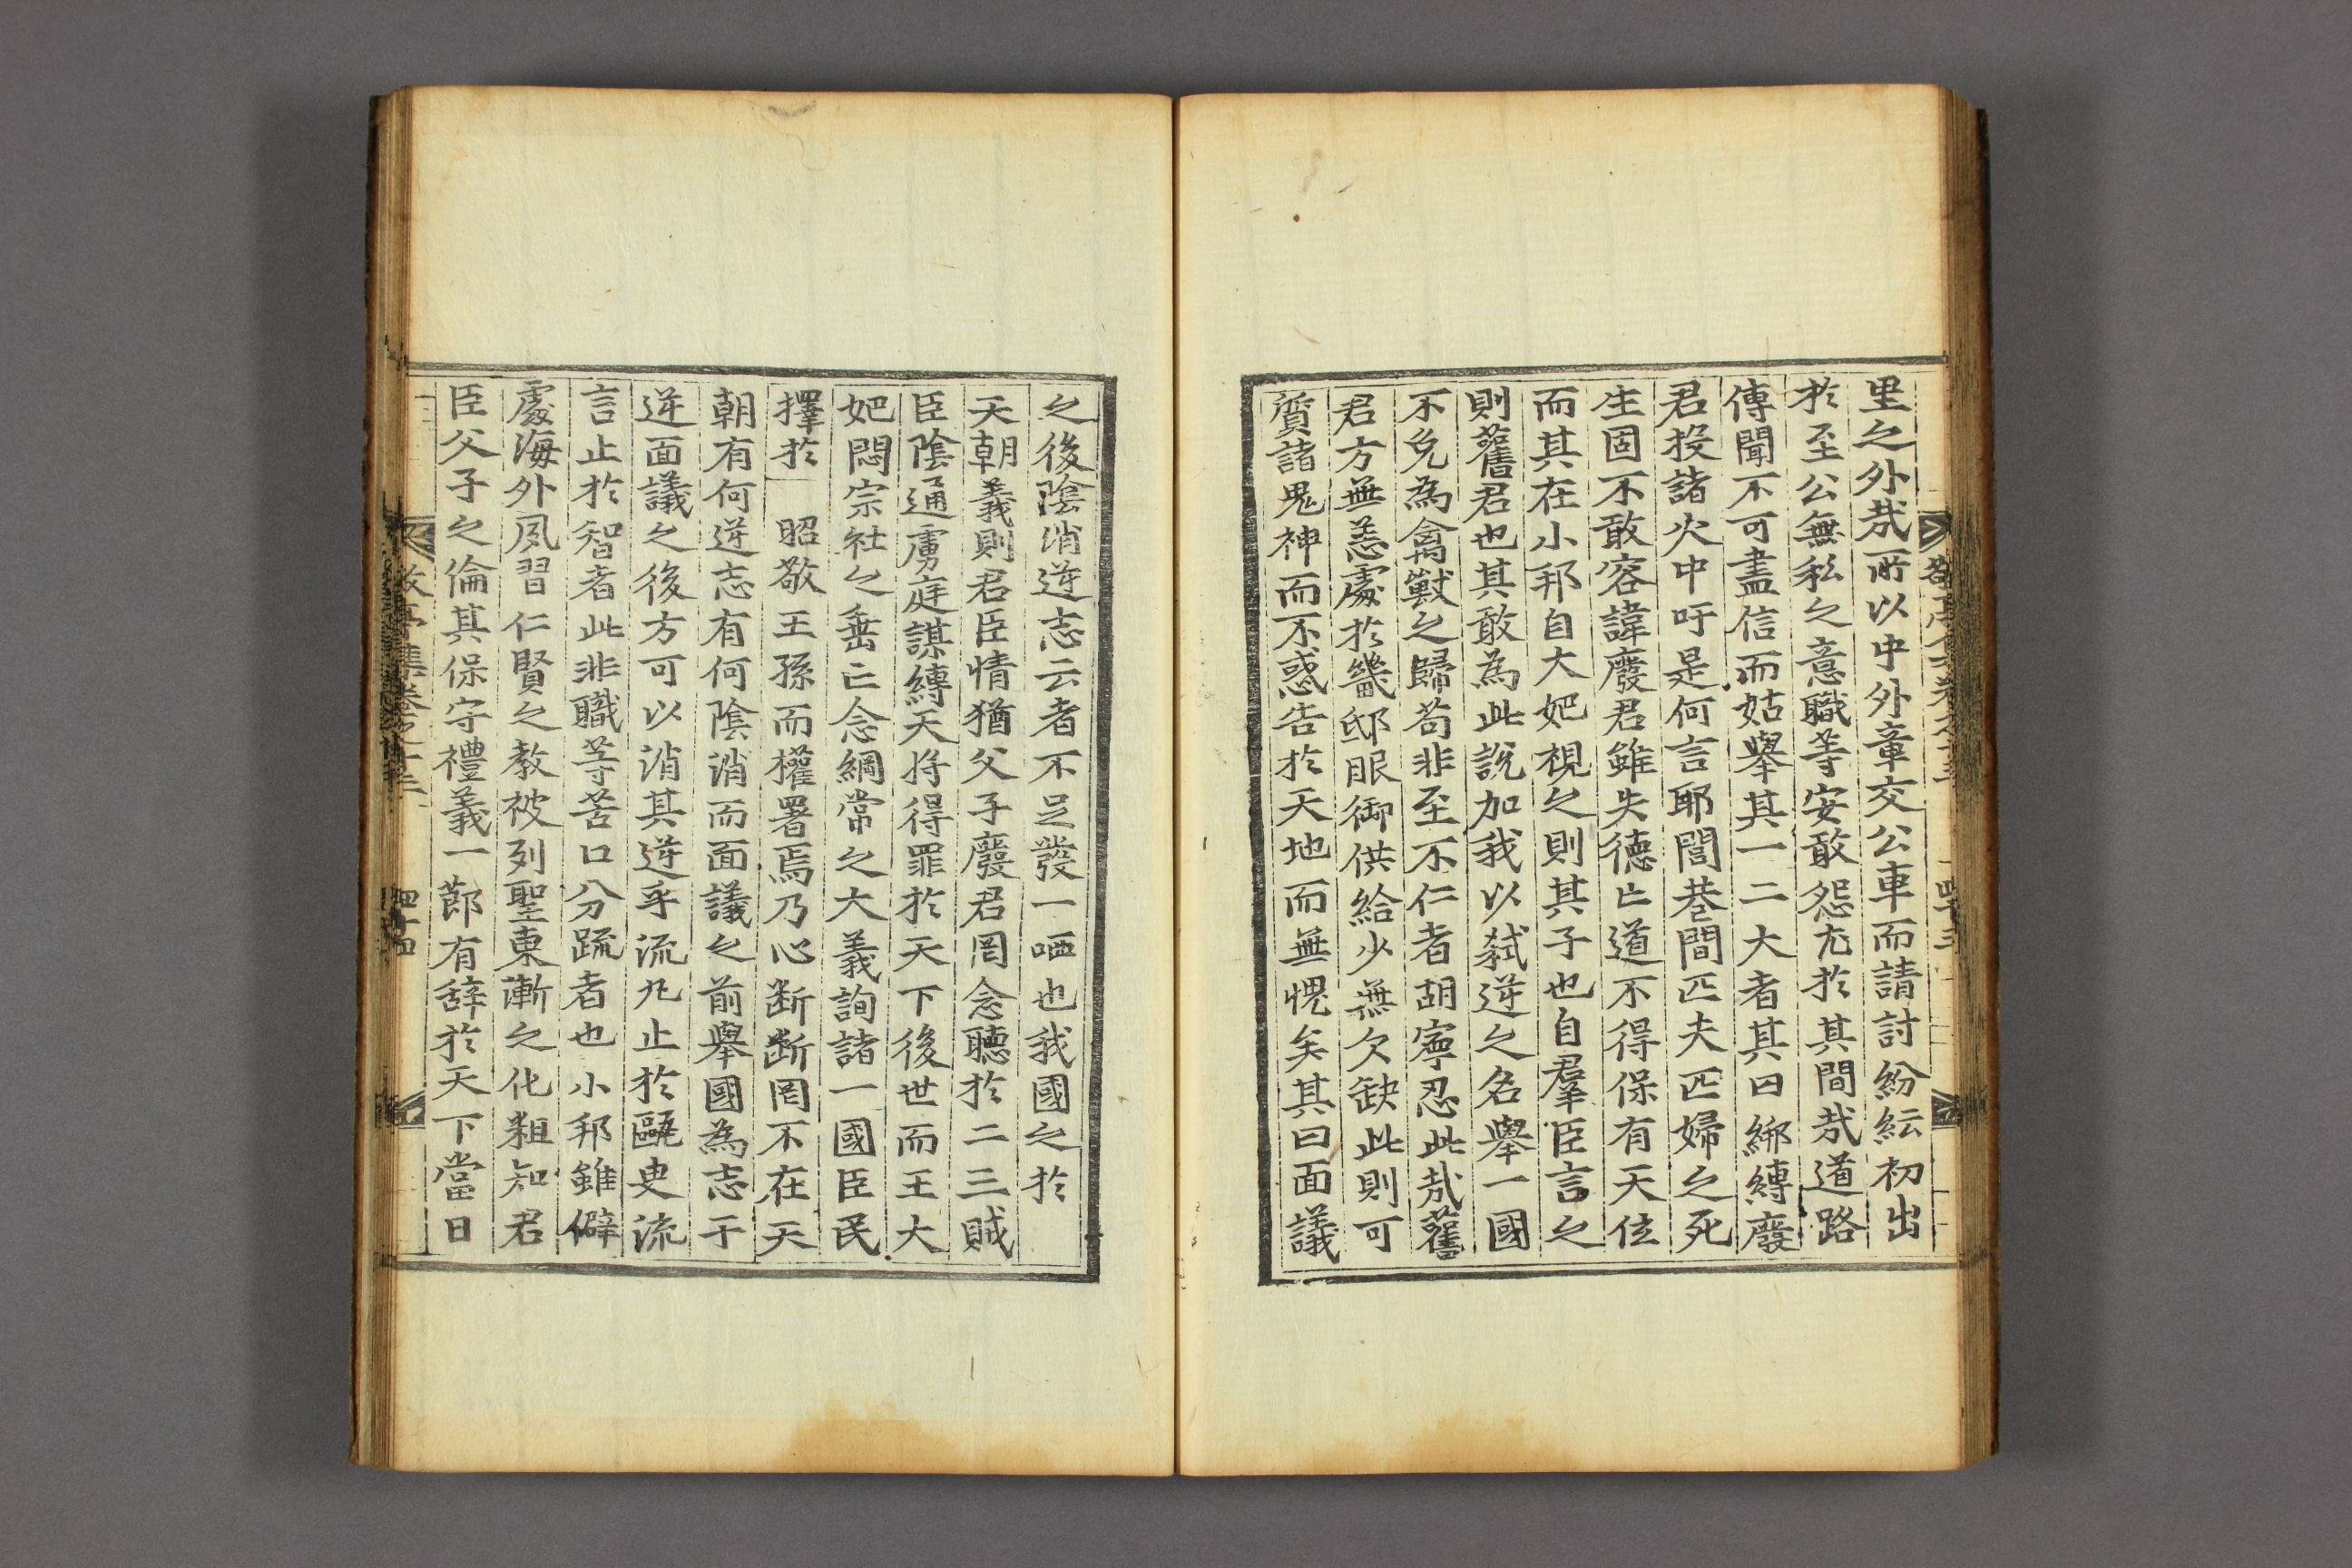 里之外㢤所以中外章交公車而請討紛紜初出
於至公無私之意職等安敢怨尤於其間㢤道路
傳聞不可盡信而姑舉其一二大者其曰綁縛廢
君投諸火中吁是何言耶閭巷間匹夫匹婦之死
生固不敢容諱廢君雖失德亡道不得保有天位
而其在小邦自大妃視之則其子也自羣臣言之
則舊君也其敢為此說加我以弑逆之名舉一國
不免為禽獸之歸苟非至不仁者胡寧忍此㢤舊
君方無恙處於畿邸服御供給少無欠缺此則可
質諸鬼神而不惑告於天地而無愧矣其曰面議
之後陰消逆志云者不足發一哂也我國之於
天朝義則君臣情猶父子廢君罔念聽於二三賊
臣陰通虜庭謀縛天將得罪於天下後世而王大
妃悶宗社之垂亡念綱常之大義詢諸一國臣民
擇於　昭敬王孫而權署焉乃心斷斷罔不在天
朝有何逆志有何陰消而面議之前舉國為志于
逆面議之後方可以消其逆乎流丸止於甌臾流
言止於智者此非職等苦口分疏者也小邦雖僻
處海外夙習仁賢之教被列聖東漸之化粗知君
臣父子之倫其保守禮義一節有辭於天下當日
四十四